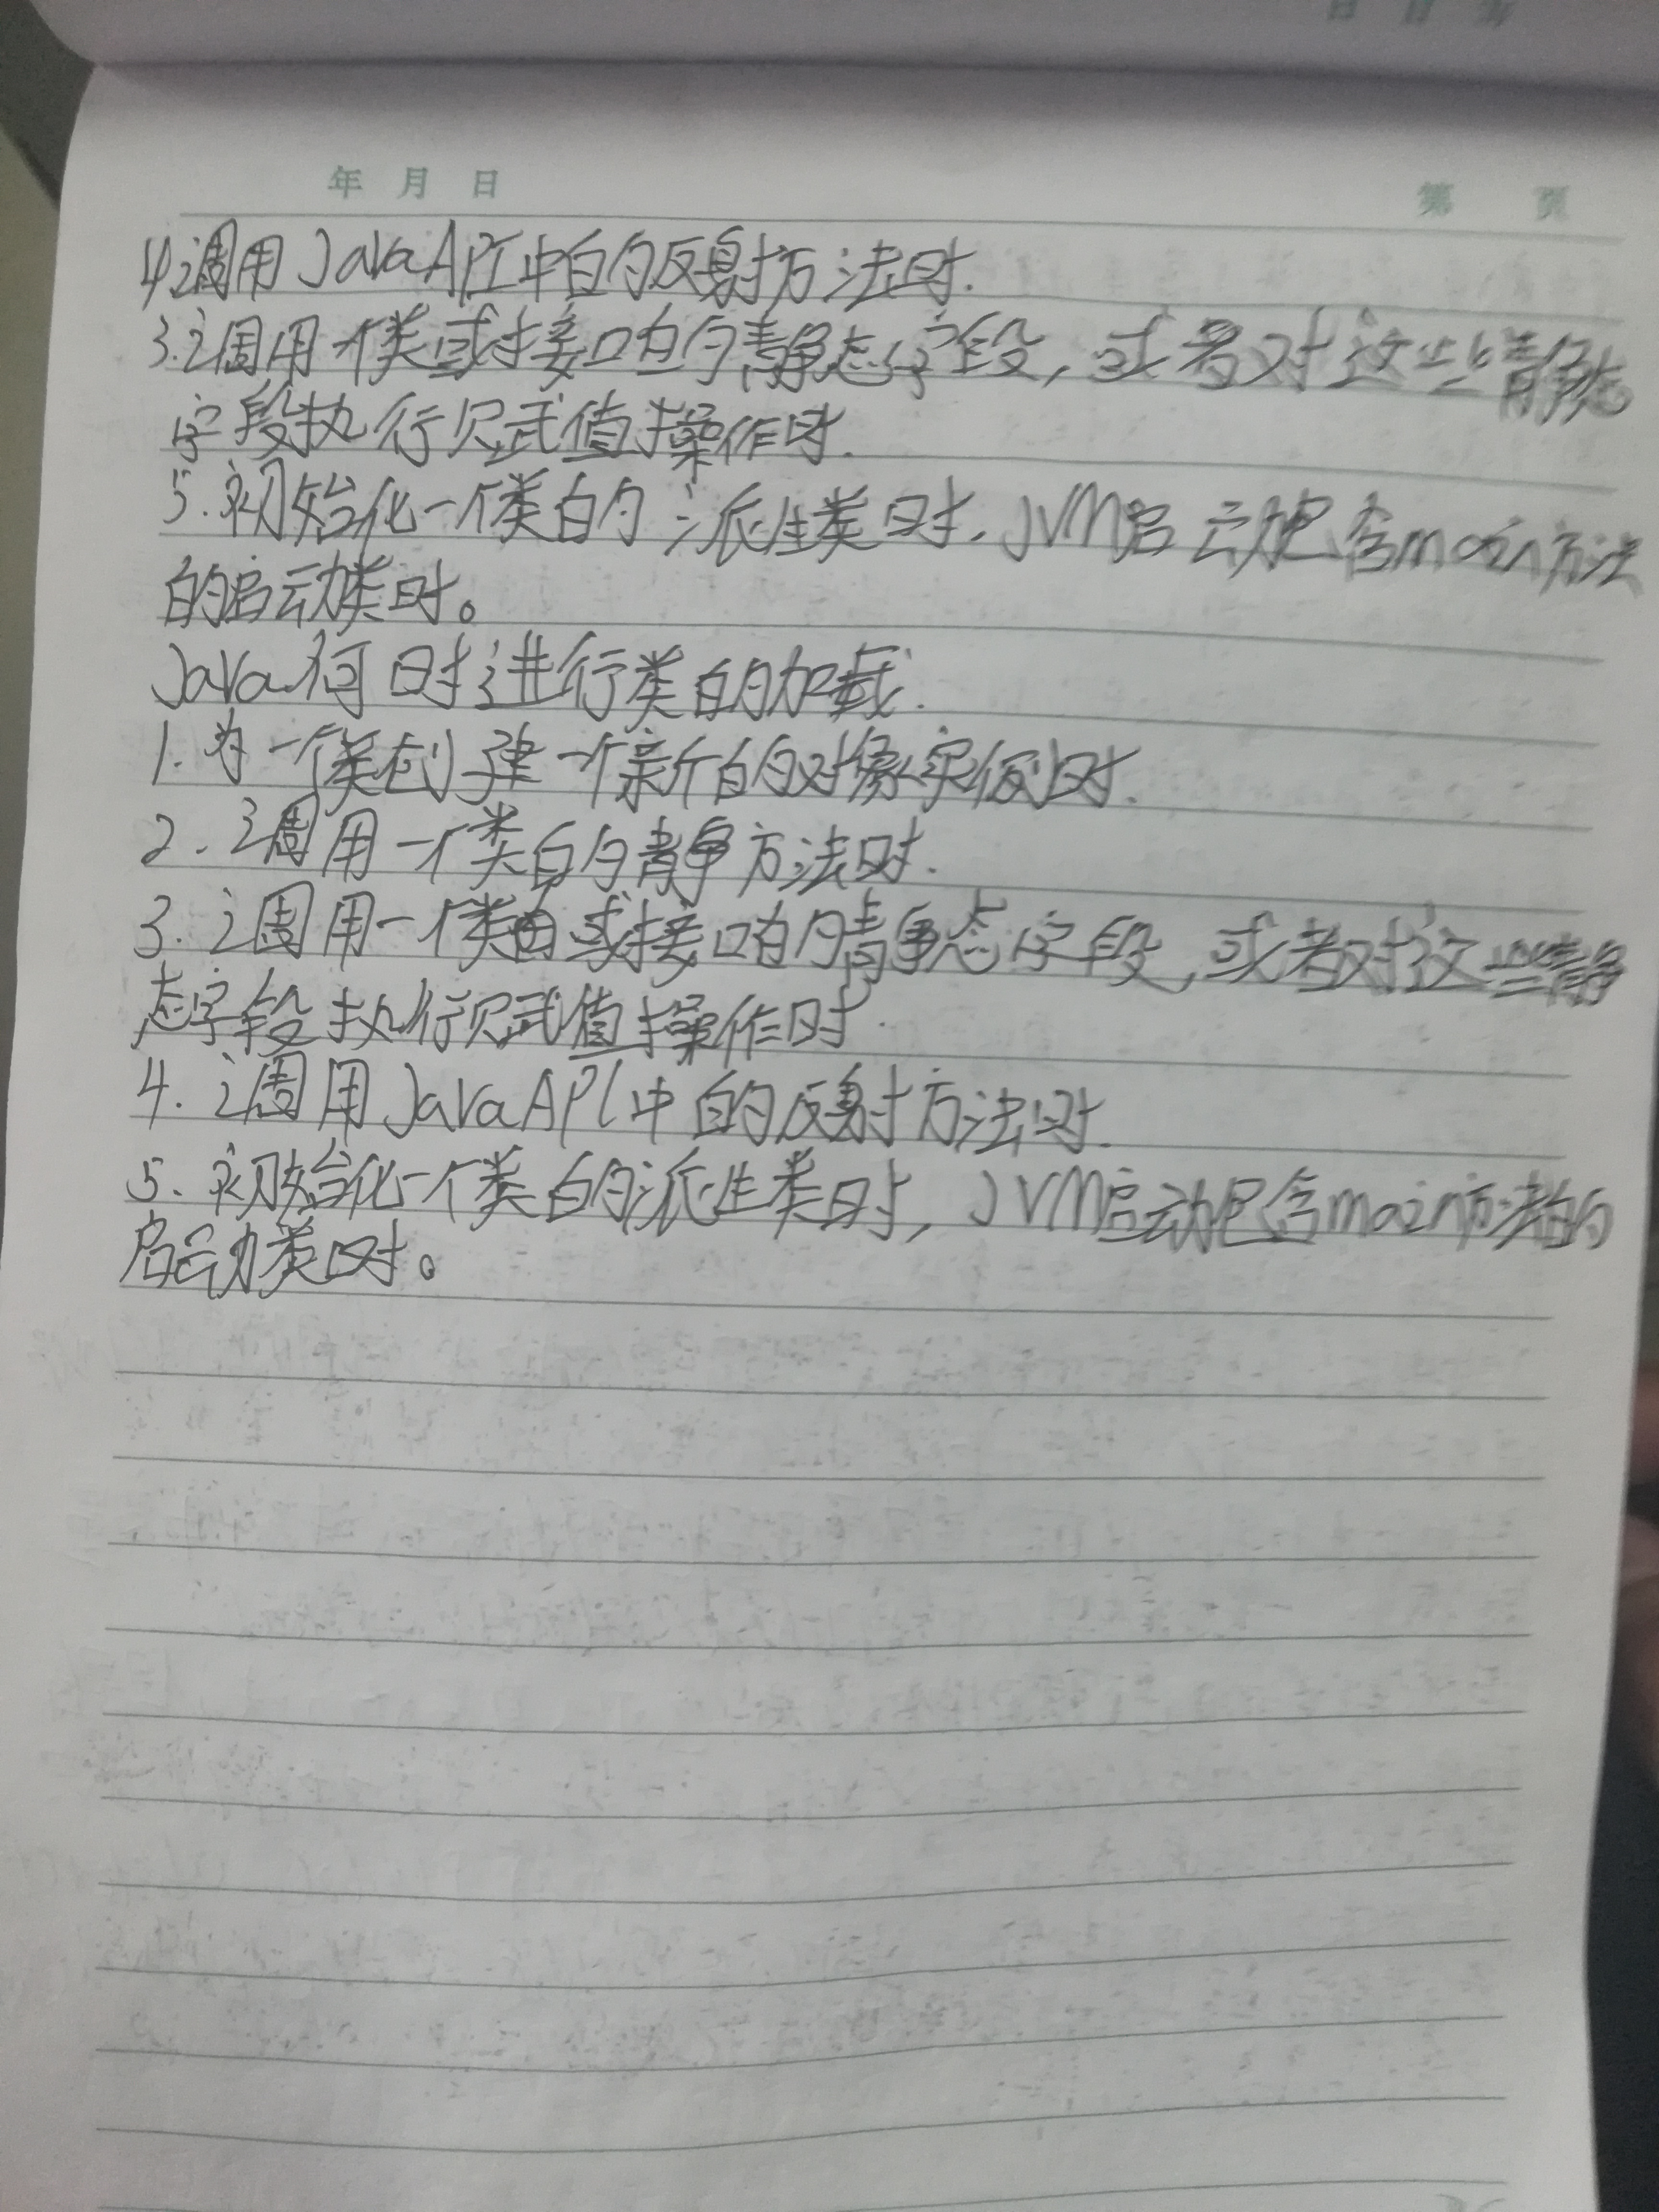 年 月 日
第 页
4.调用JavaAPI中的反射方法时.
3.调用一个类或接口的静态字段，或者对这些静态
字段执行赋值操作时.
5.初始化一个类的派生类时.JVM启动包含main方法
的启动类时。
Java何时进行类的加载.
1.为一个类创建一个新的对象实例时.
2.调用一个类的静方法时.
3.调用一个类或接口的静态字段，或者对这些静
态字段执行赋值操作时.
4.调用JavaAPI中的反射方法时.
5.初始化一个类的派生类时，JVM启动包含main方法的
启动类时。